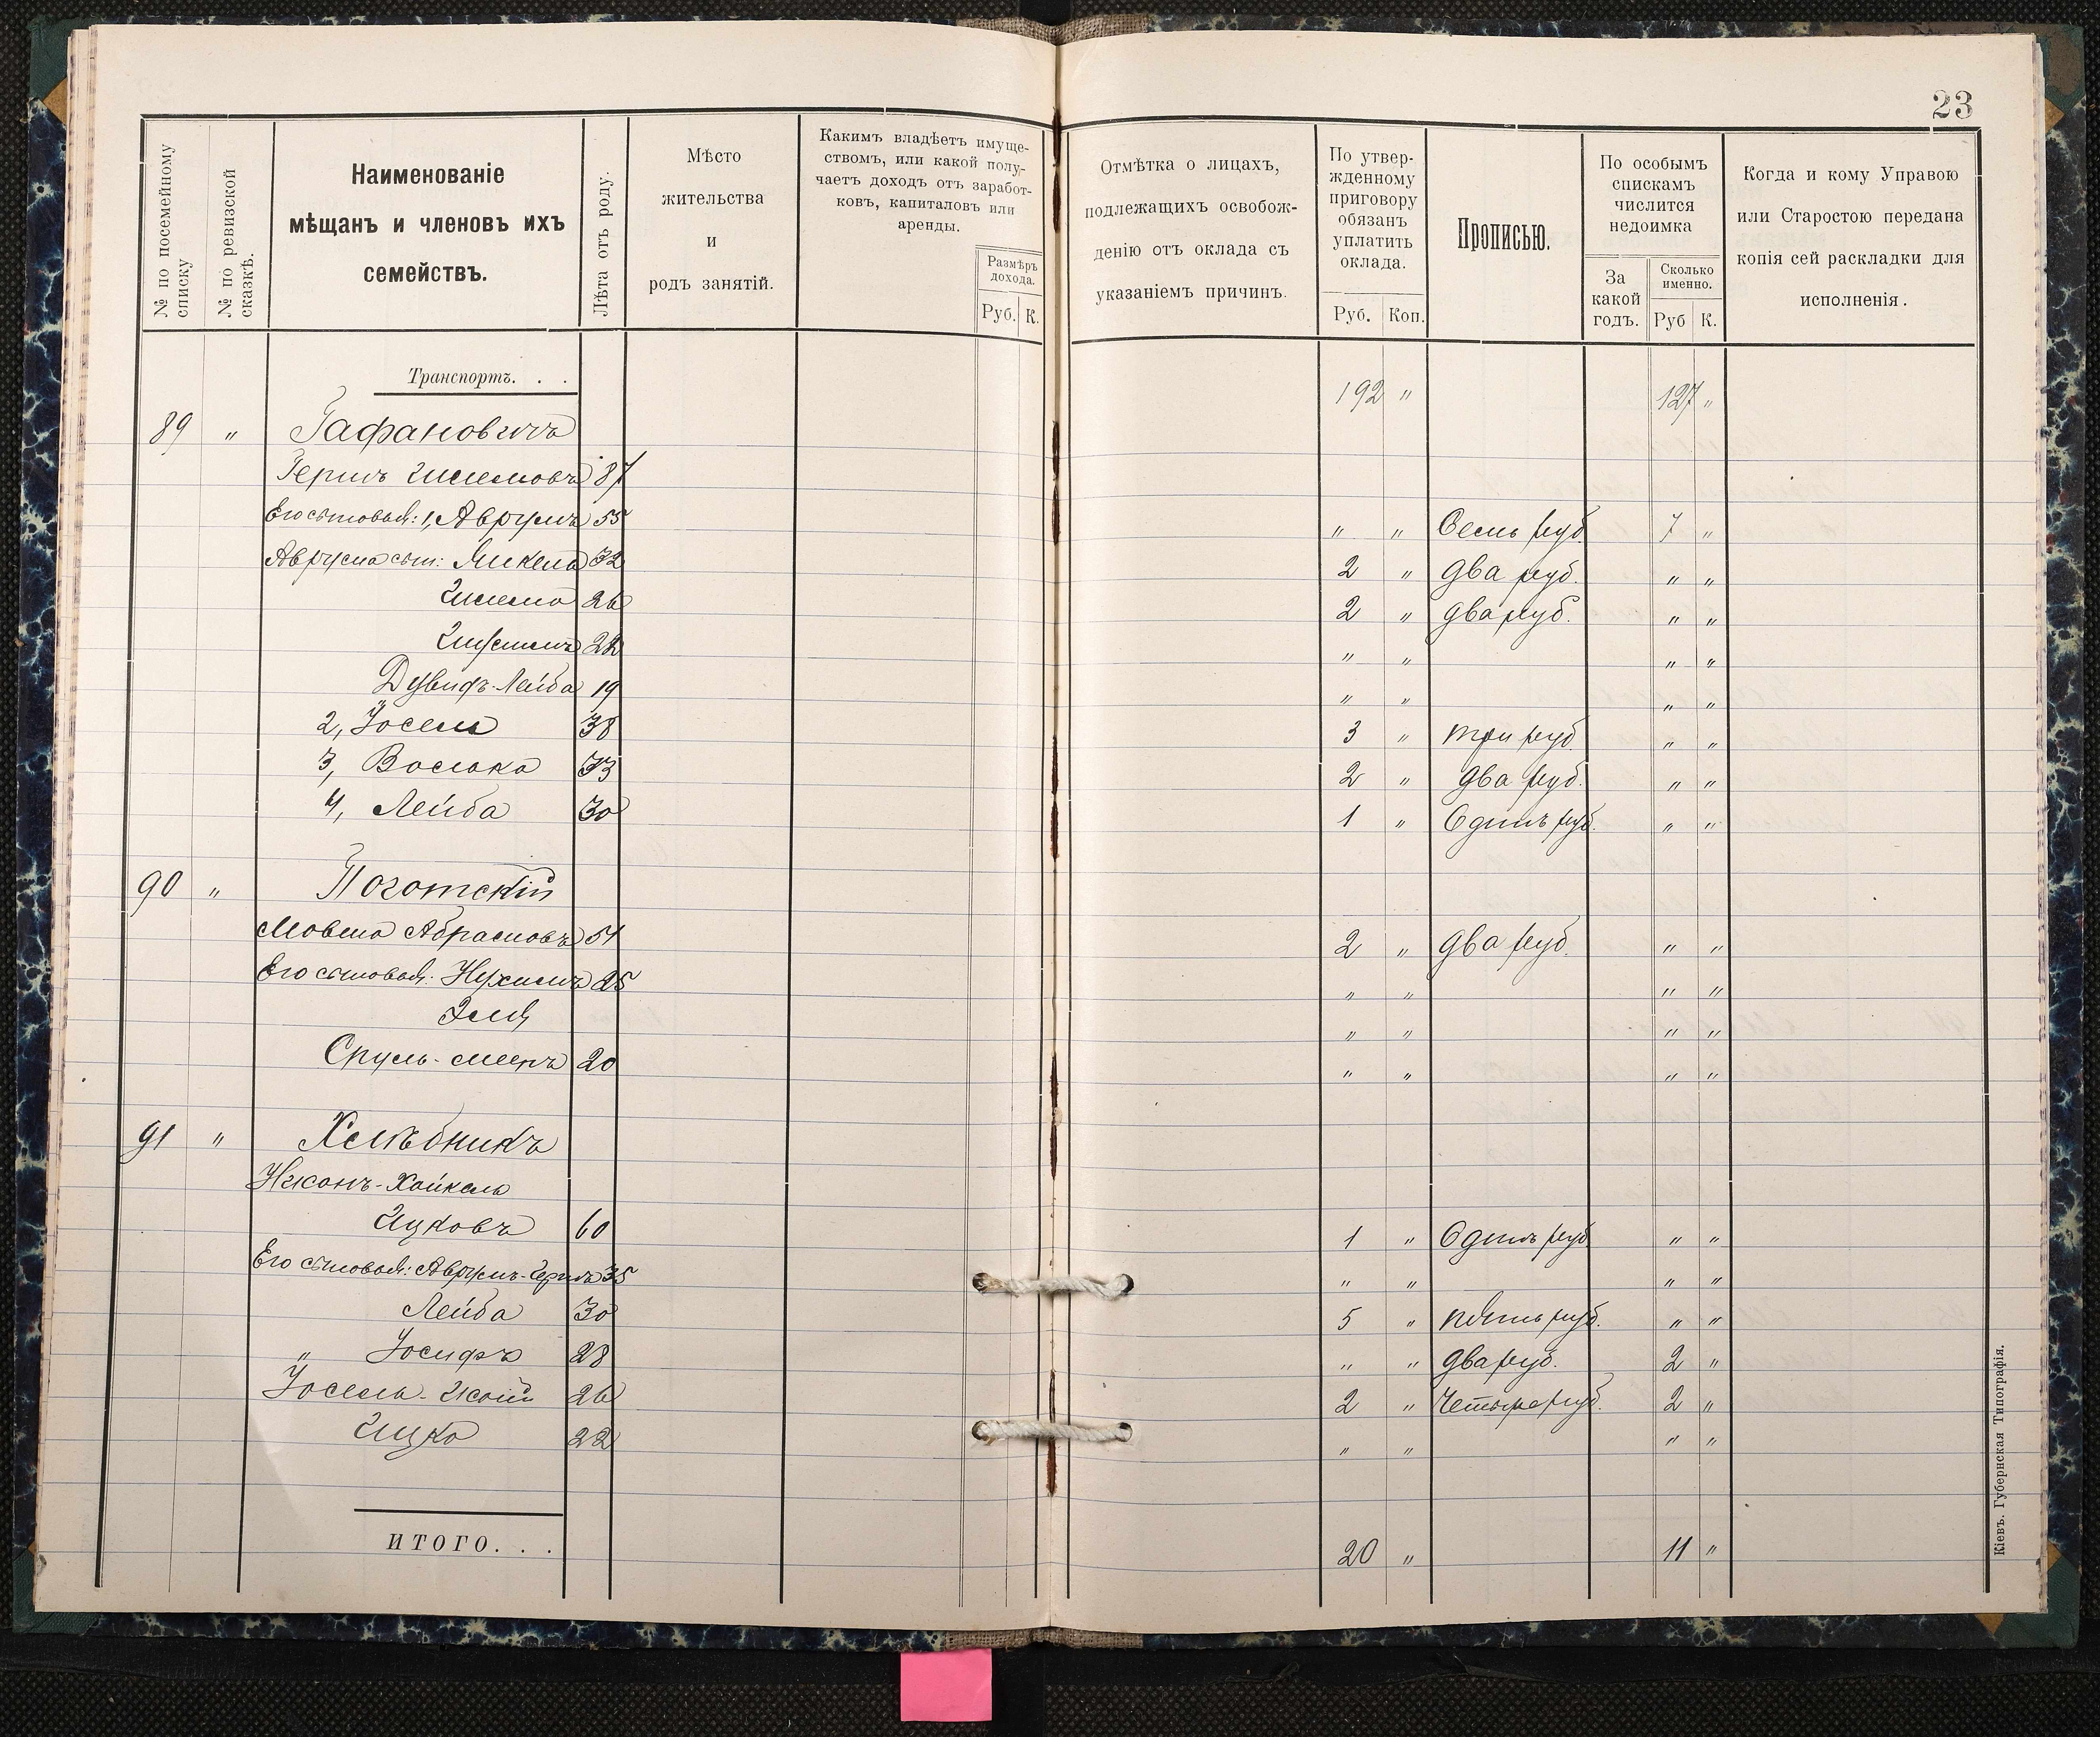 23
№ по посемейному списку
№ по ревизской сказкѣ.
Наименованіе
мѣщанъ и членовъ ихъ
семействъ.
Лѣта отъ роду.
Мѣсто
жительства
и
родъ занятій.
Какимъ владѣетъ имуще-
ствомъ, или какой полу-
чаетъ доходъ отъ заработ-
ковъ, капиталовъ или
аренды.
Размѣръ
дохода.
Руб. К.
Отмѣтка о лицахъ,
подлежащихъ освобож-
денію отъ оклада съ
указаніемъ причинъ.
По утвер-
жденному
приговору
обязанъ
уплатить
оклада.
Руб. Коп.
Прописью.
По особымъ
спискамъ
числится
недоимка
За
какой
годъ.
Сколько
именно.
Руб К.
Когда и кому Управою
или Старостою передана
копія сей раскладки для
исполненія.
Транспортъ. . . 192 " 127 "
89 " Гафановичъ
Гершъ 87
Его сыновья: 1, Аврумъ 55 " " Семь руб. 7 "
Аврума сын: 32 2 " два руб. " "
26 2 " два руб. " "
22 " " " "
Дувидъ-Лейба 19 " " " "
2, Іосель 38 3 " три руб. " "
3, Воська 33 2 " два руб. " "
4, Лейба 30 1 " Одинъ руб. " "
90 " Поготскій
Мовша Абрамовъ 51 2 " два руб. " "
Его сыновья: Нухимъ 25 " " " "
" " " "
Сруль-Мееръ 20 " " " "
91 " Хлѣбникъ
Хайкель
Ицковъ 60 1 " Одинъ руб. " "
Его сыновья: Аврумъ-Гершъ 35 " " " "
Лейба 30 5 " пять руб. " "
" Іосифъ 28 " " два руб. 2 "
Іосель- 26 2 " Четыре руб. 2 "
Ицко 22 " " " "
ИТОГО. . . 20 " 11 "
Кіевъ. Губернская Типографія.